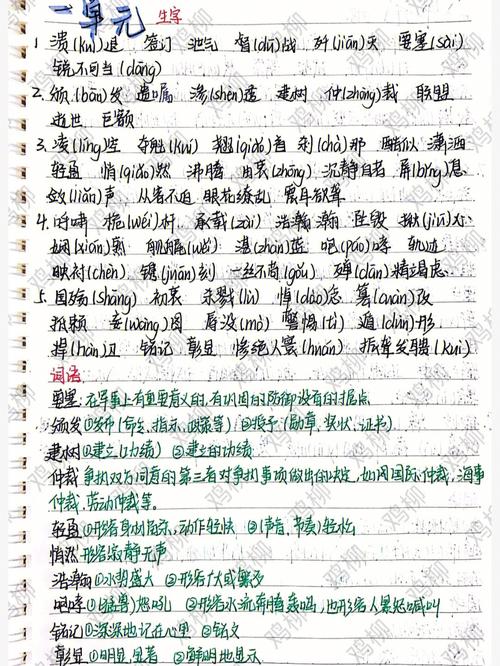 一单元 生字
1. 溃(kuì)退 签订 泄气 督(dū)战 歼(jiān)灭 要塞(sài)
锐不可当(dāng)
2. 颁(bān)发 遗嘱 渗(shèn)透 建树 仲(zhòng)裁 联盟
逝世 巨额
3. 凌(líng)空 夺魁(kuí) 翘(qiáo)首 刹(chà)那 酷似 潇洒
轻盈 悄(qiǎo)然 沸腾 由衷(zhōng) 沉静自若 屏(bǐng)息
敛(liǎn)声 从容不迫 眼花缭乱 震耳欲聋
4. 呼啸 桅(wéi)杆 承载(zài) 浩瀚 殚(dān)精竭虑
娴(xián)熟 舰艉(wěi) 湛(zhàn)蓝 咆(páo)哮 轨迹
映衬(chèn) 镌(juān)刻 一丝不苟(gǒu)
5. 国殇(shāng) 初衷 杀戮(lù) 悼(dào)念 篡(cuàn)改
妄(wàng)图 肩没(mò) 警惕(tì) 遁(dùn)形
捍(hàn)卫 铭记 彰显 惨绝人寰(huán) 振聋发聩(kuì)
词语
要塞: 在军事上有重要意义的,有巩固的防御设备的据点
颁发 ①发布(命令、指示、政策等) ②授予(勋章、奖状、证书)
建树 ①建立(功绩) ②建立的功绩
仲裁 争执双方同意的第三者对争执事项做出的决定,如国际仲裁,海事
仲裁,劳动仲裁等。
轻盈 ①形容身材苗条,动作轻快 ②(声音、节奏)轻松
悄然 形容寂静无声
浩瀚 ①水势盛大 ②形容广大或繁多
咆哮 ①(猛兽)怒吼 ②形容水流奔腾轰鸣,也形容人暴怒喊叫
铭记 ①深深地记在心里 ②铭文
彰显 ①明显,显著 ②鲜明地显示
鸡柳